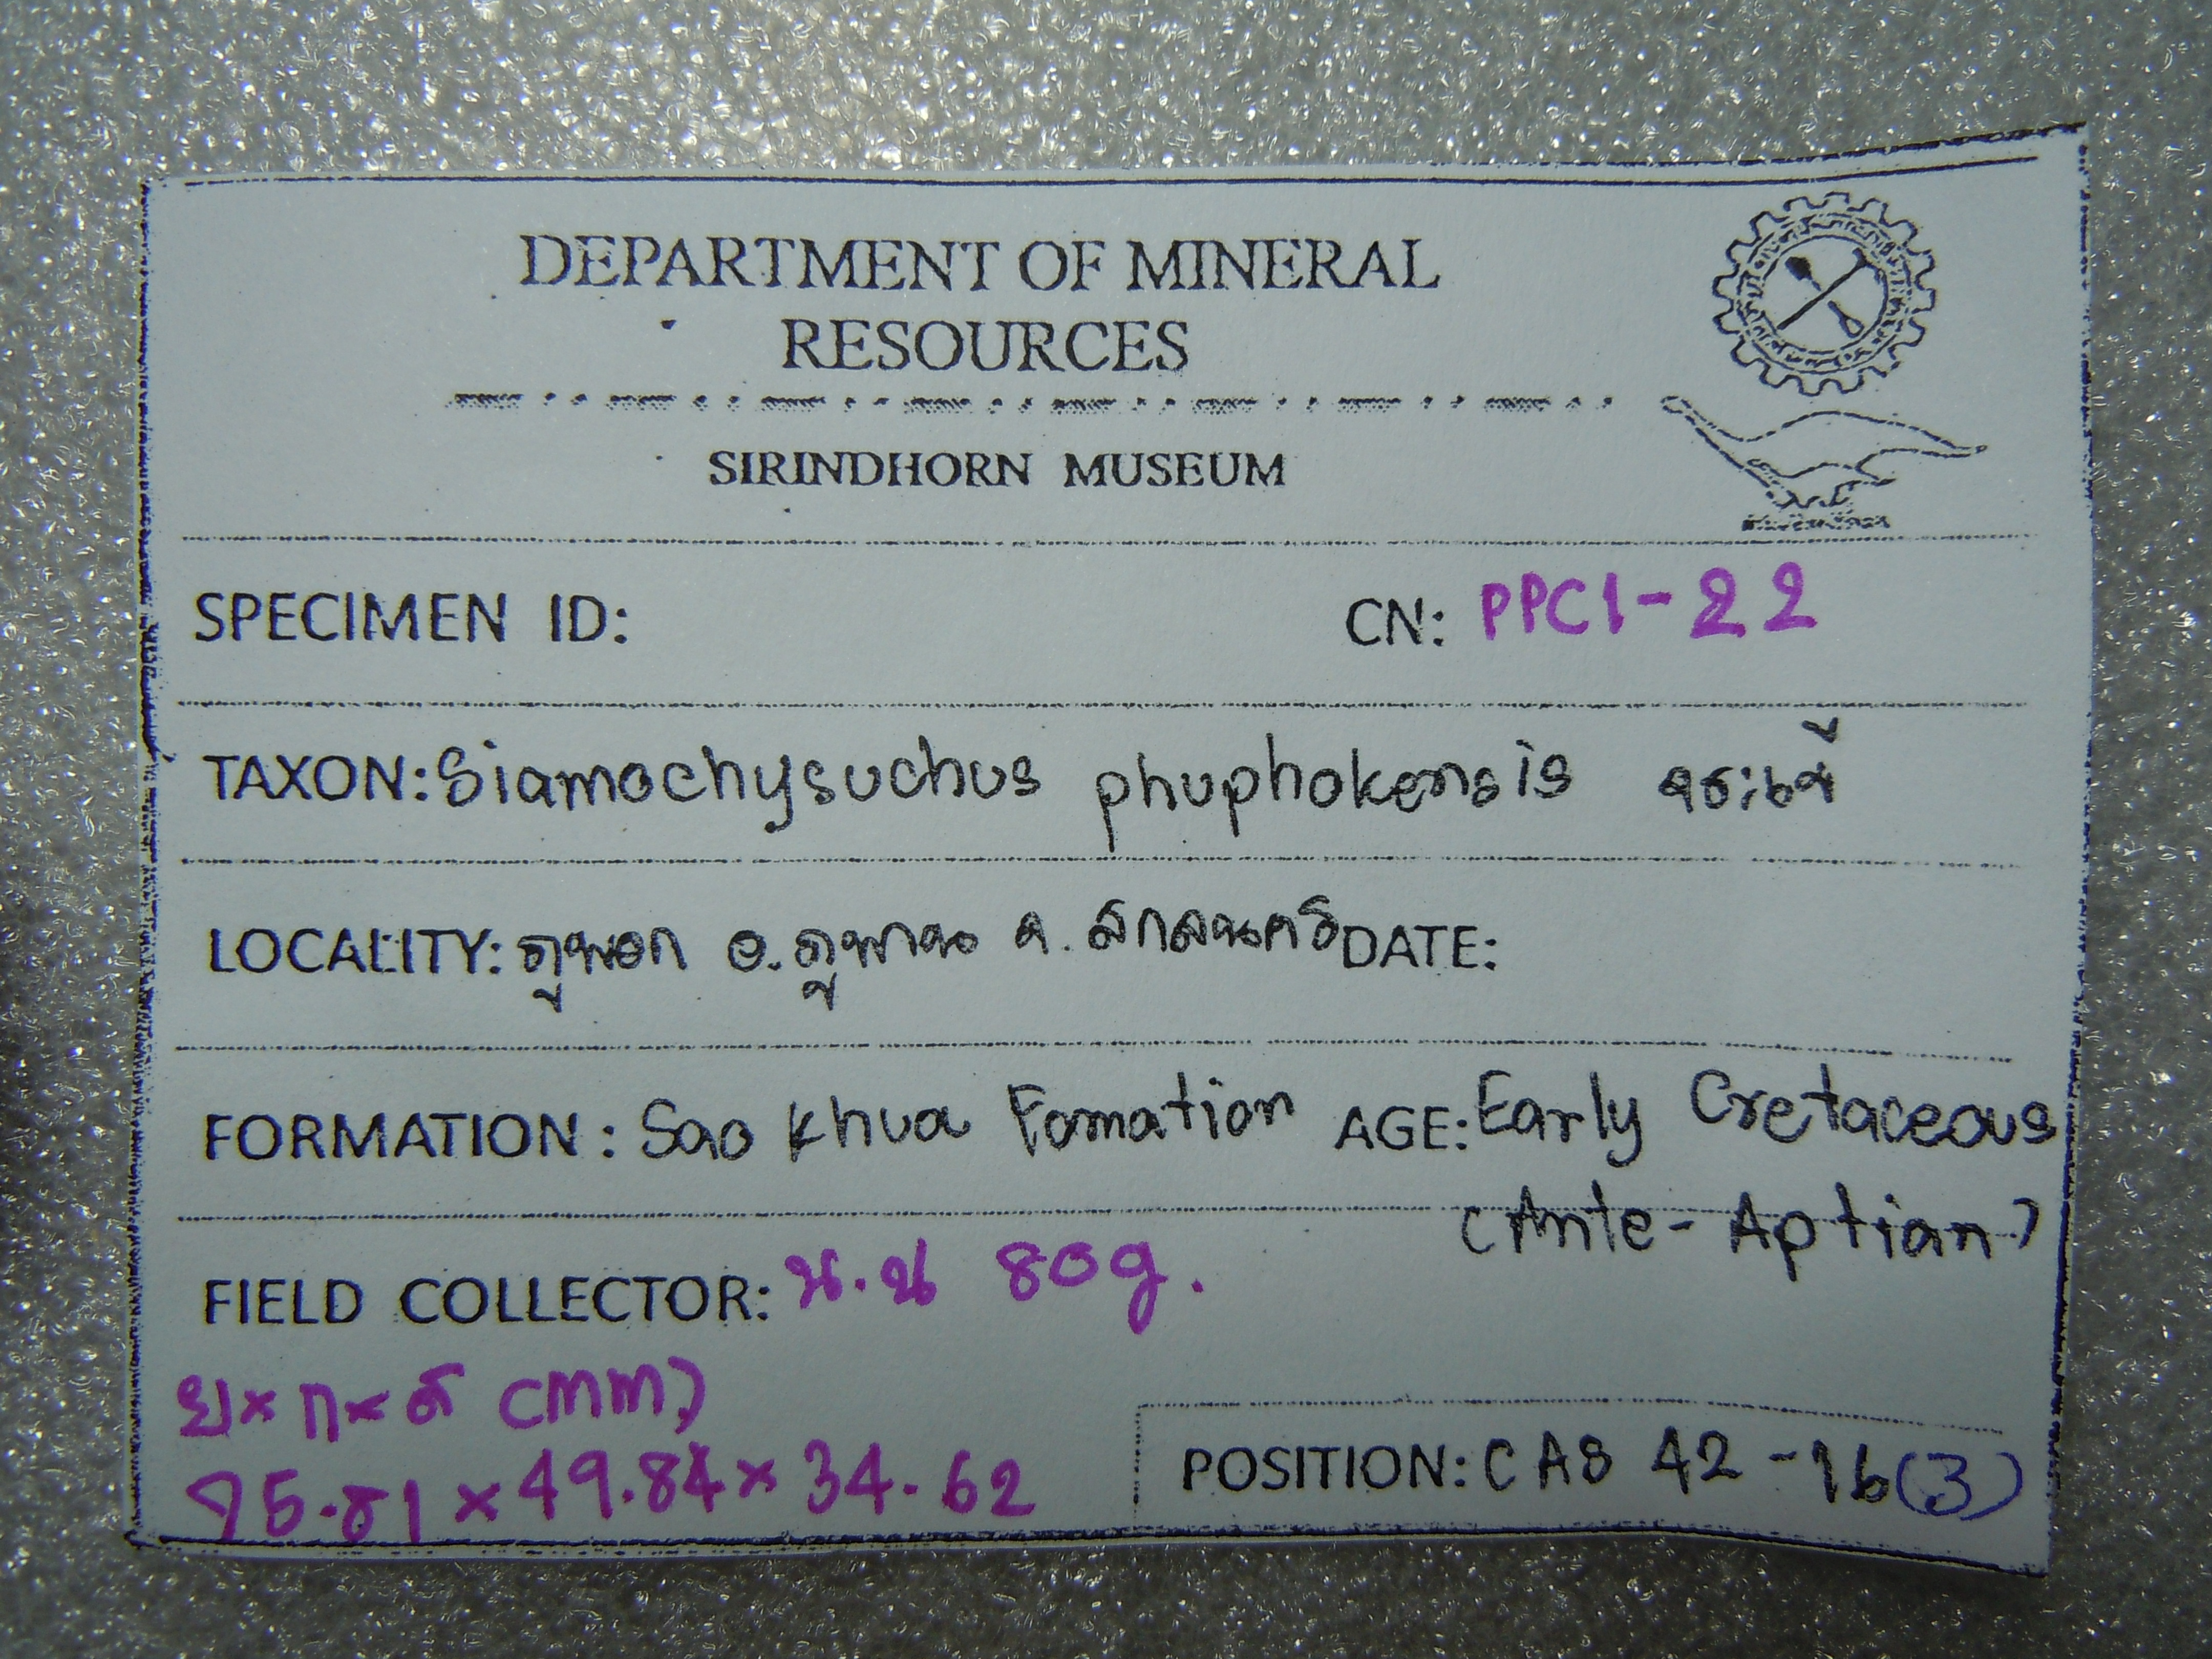 DEPARTMENT OF MINERAL
RESOURCES
SIRINDHORN MUSEUM
SPECIMEN ID: CN: PPC1-22
TAXON: Siamochysuchus phuphokensis จระเข้
LOCALITY: ภูพอก อ.ภูพาน จ.สกลนคร DATE:
FORMATION: Sao Khua Fomation AGE: Early Cretaceous
(Ante-Aptian)
FIELD COLLECTOR: น.น 80g.
ย×ก×ส (mm)
75.81×49.84×34.62
POSITION: CAB 42-16(3)